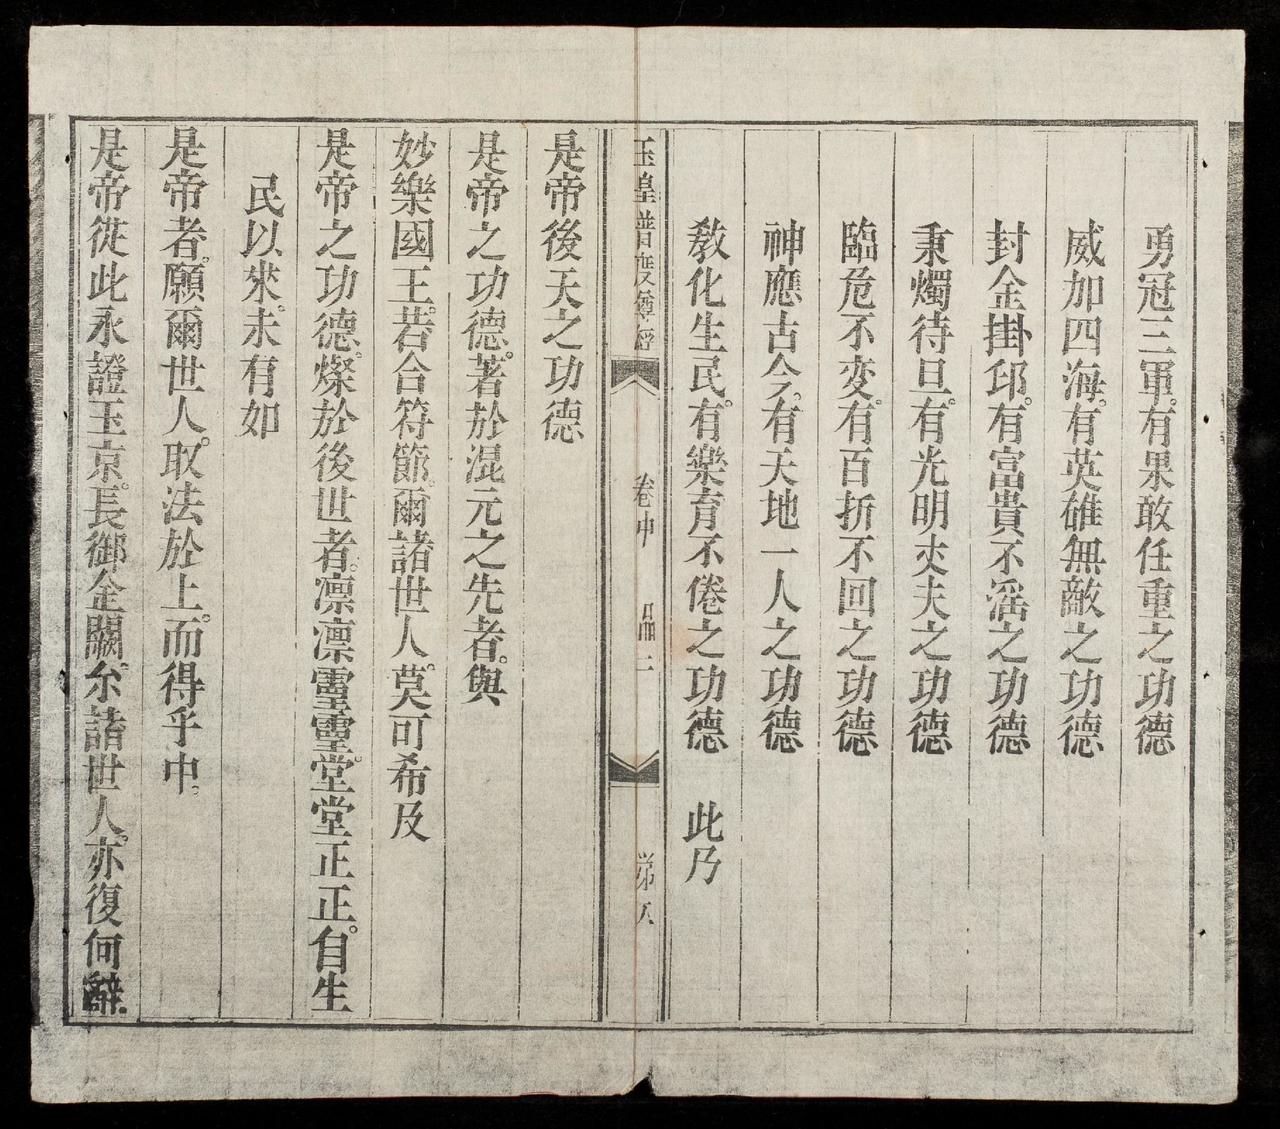 勇冠三軍。有果敢任重之功德
威加四海。有英雄無敵之功德
封金掛印。有富貴不滛之功德
秉燭待旦。有光明丈夫之功德
臨危不变。有百折不回之功德
神應古今。有天地一人之功德
教化生民。有樂育不倦之功德　此乃
玉皇普度尊經　卷中　品二　第八
是帝後天之功德
是帝之功德。著於混元之先者。與
妙樂國王。若合符節。爾諸世人。莫可希及
是帝之功德。燦於後世者。凛凛靈靈。堂堂正正。自生
民以來。未有如
是帝者。願爾世人。取法於上。而得乎中。
是帝從此永證玉京。長御金闕。尒諸世人。亦復何辭。